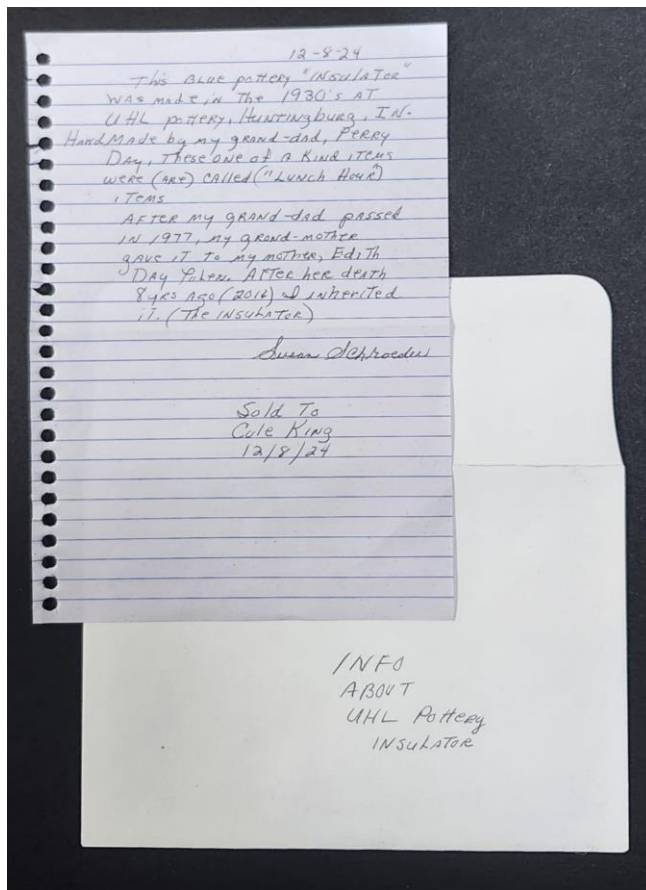 12-8-24
This Blue pottery "INSULATOR"
was made in the 1930's AT
UHL pottery, Huntingburg, IN.
HandMade by my grand-dad, Perry
Day, These one of a Kind items
were (are) called ("Lunch Hour")
items
AFTER my grand-dad passed
IN 1977, my grand-mother
gave it to my mother, Edith
Day After her death
8 yrs ago (2016) I inherited
it. (The INSULATOR)
Susan Schroeder
Sold To
Cole King
12/8/24
INFO
ABOUT
UHL Pottery
INSULATOR